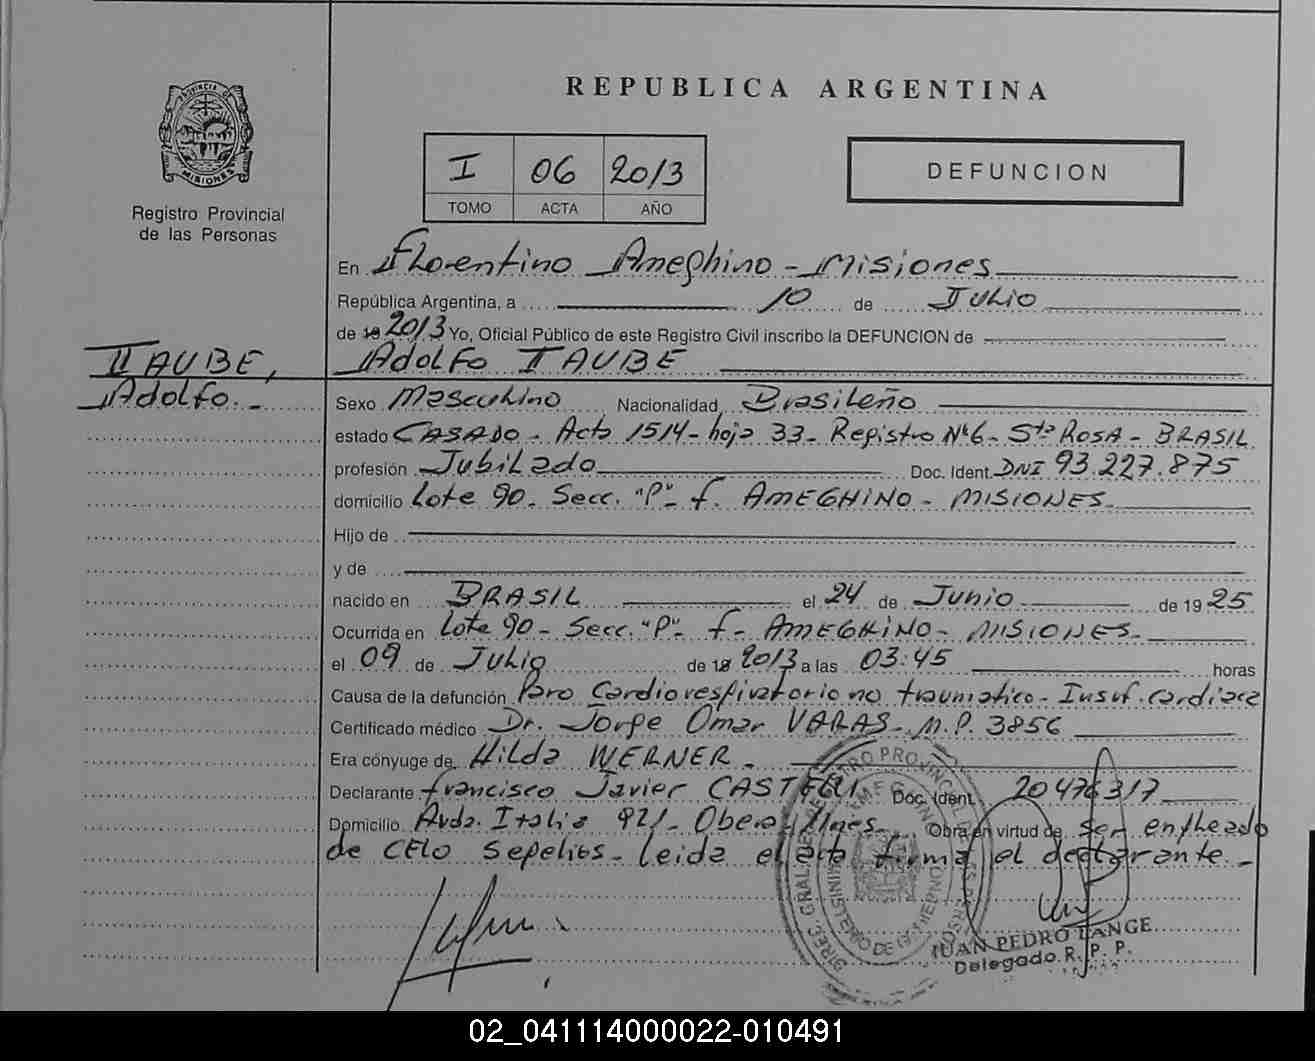 REPUBLICA ARGENTINA
PROVINCIA DE
MISIONES
Registro Provincial
de las Personas
I 06 2013
TOMO ACTA AÑO
DEFUNCION
En Florentino Ameghino - Misiones
República Argentina, a 10 de Julio
de 19 2013 Yo, Oficial Público de este Registro Civil inscribo la DEFUNCION de
TAUBE, Adolfo TAUBE
Adolfo.-
Sexo Masculino Nacionalidad Brasileño
estado CASADO - Acta 1514 - hoja 33 - Registro Nº 6 - Sta ROSA - BRASIL
profesión Jubilado Doc. Ident. DNI 93.227.875
domicilio Lote 90 - Secc. "P" - f. AMEGHINO - MISIONES
Hijo de
y de
nacido en BRASIL el 24 de Junio de 19 25
Ocurrida en Lote 90 - Secc. "P" - f - AMEGHINO - MISIONES
el 09 de Julio de 19 2013 a las 03:45 horas
Causa de la defunción Paro Cardiorespiratorio no traumatico - Insuf. cardiaca
Certificado médico Dr. Jorge Omar VARAS - M.P. 3856
Era cónyuge de Hilda WERNER -
Declarante Francisco Javier CASTELLI Doc. Ident. 20476317
Domicilio Avda. Italia 921 - Obera, Mnes. Obra en virtud de ser empleado
de CELO Sepelios - leida el acta firma el declarante -
JUAN PEDRO LANGE
Delegado R. P. P.
02_041114000022-010491